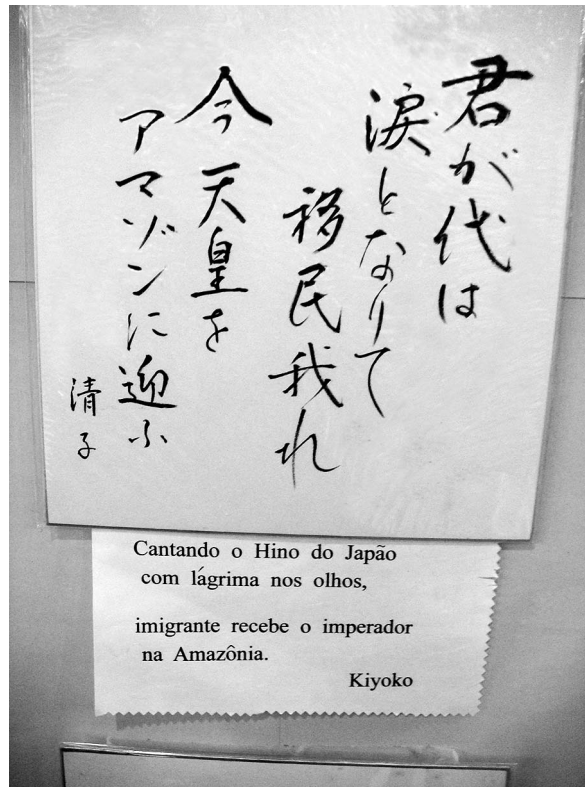 君が代は
涙となりて
移民我れ
今天皇を
アマゾンに迎ふ
清子
Cantando o Hino do Japão
com lágrima nos olhos,
imigrante recebe o imperador
na Amazônia.
Kiyoko